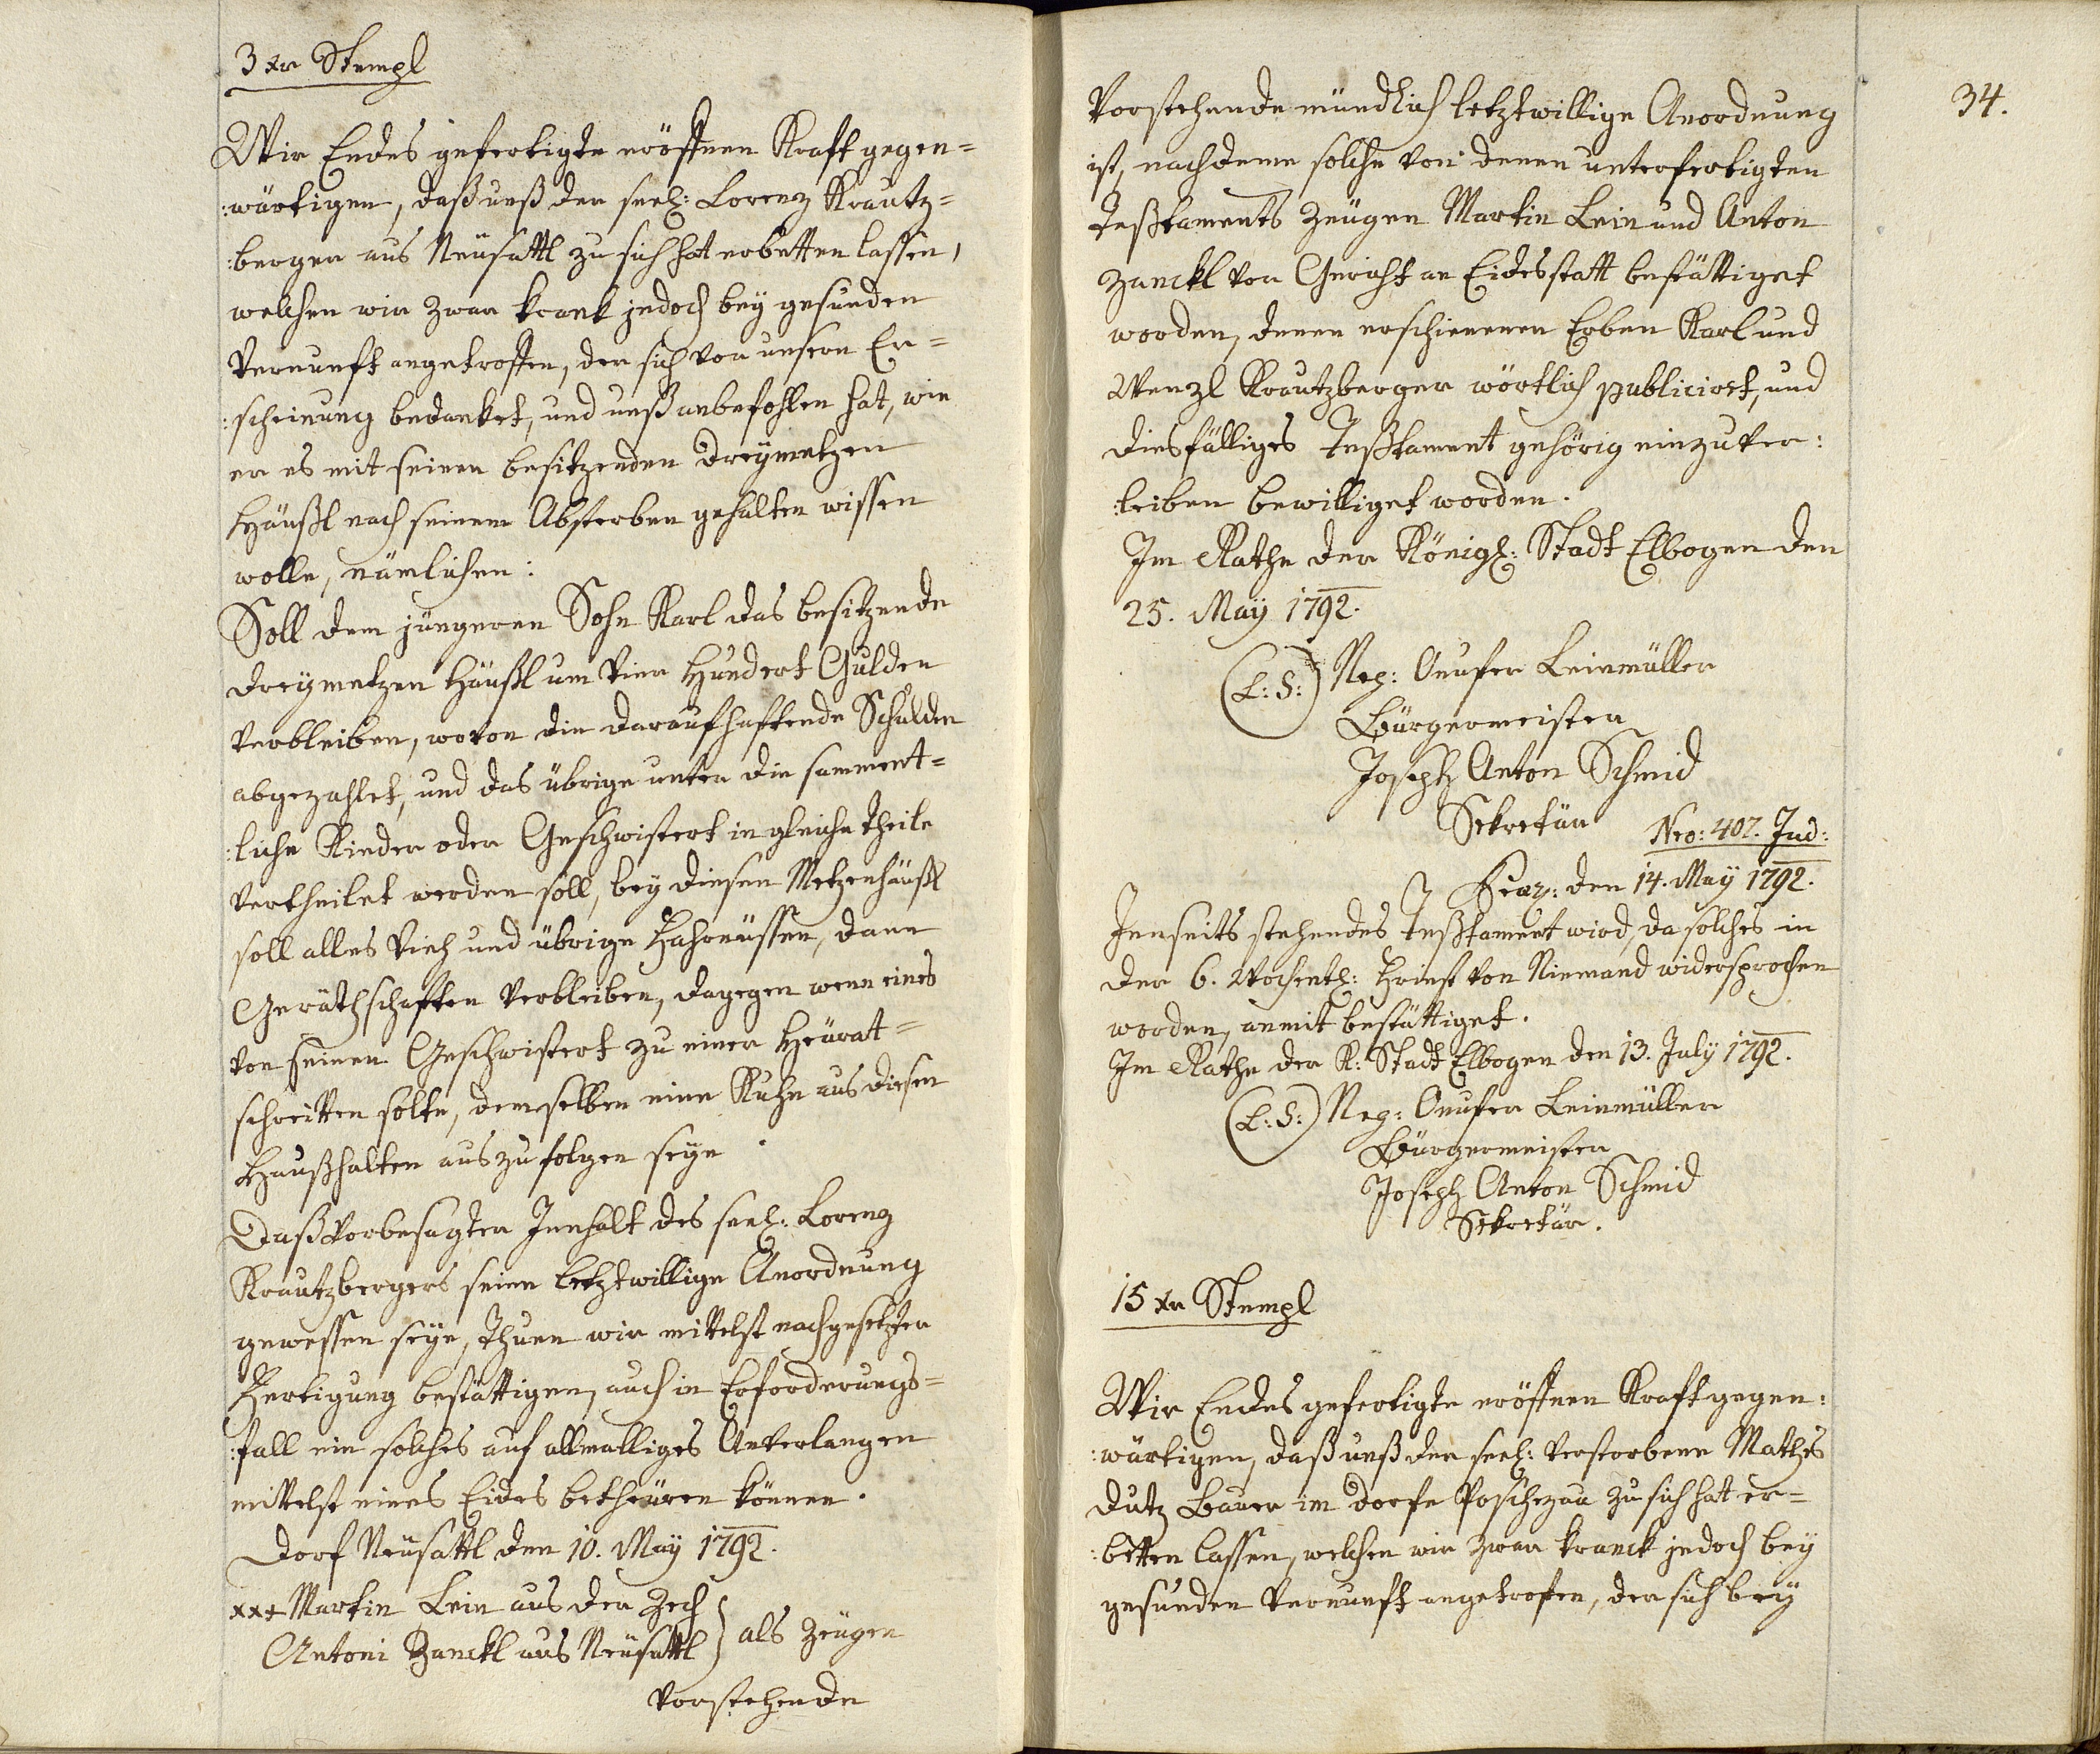 3 xr Stempl
Wir Endes gefertigte eröffnen Kraft gegen=
:wärtigen, daß unß der seel: Lorenz Krautz=
:berger aus Neüsattl zu sich hat erbetten lassen,
welchen wir zwar krank jedoch bey gesunden
Vernunft angetroffen, der sich vor unsern Er=
:scheinung bedanket, und unß anbefohlen hat, wie
er es mit seinen besitzenden Dreymetzen
Häußl nach seinem Absterben gehalten wissen
wolle, nämlichen:
Soll dem jüngeren Sohn Karl das besitzende
Dreymetzen Häußl um Vier Hundert Gulden
verbleiben, wovon die daraufhaftende Schulden
abgezahlet, und das übrige unter die sament=
:liche Kinder oder Geschwistert in gleiche Theile
vertheilet werden soll, bey diesen Metzenhäußl
soll alles Vieh und übrige Fahrnüssen, dann
Geräthschaften verbleiben, dagegen wenn eines
von seinen Geschwistert zu einer Heürat=
schreitten solte, demselben eine Kuhe aus diesen
Haußhalten auszufolgen seye.
Daß vorbesagter Innhalt des seel: Lorenz
Krautzbergers seine letztwillige Anordnung
gewessen seye, Thuen wir mittelst nachgesetzter
Fertigung bestättigen, auch in Erforderungs=
:fall ein solches auf allmalliges Anverlangen
mittelst eines Eides betheüren können.
Dorf Neüsattl den 10. May 1792.
xx+ Martin Lein aus der Zech
Antoni Zanckl aus Neüsattl } als Zeügen
Vorstehende
34.
Vorstehende mündlich letztwillige Anordnung
ist, nachdeme solche von denen unterfertigten
Teßtaments Zeügen Martin Lein und Anton
Zanckl vor Gericht an Eidesstatt bestättiget
worden, denen erschienenen Erben Karl und
Wenzl Krautzberger wörtlich publiciret, und
diesfälliges Teßtament gehörig einzuver:
:leiben bewilliget worden.
Im Rathe der Königl: Stadt Elbogen den
25. May 1792.
(L:S:) Neg: Onufer Leinmüller
Bürgermeister
Joseph Anton Schmid
Sekretär
Nro: 402. Jud:
Praz: den 14. May 1792.
Jenseits stehendes Teßtament wird, da solches in
der 6. Wochentl: Frist von Niemand widersprochen
worden, anmit bestättiget.
Im Rathe der K: Stadt Elbogen den 13. July 1792.
(L:S:) Neg: Onufer Leinmüller
Bürgermeister
Joseph Anton Schmid
Sekretär.
15 xr Stempl
Wir Endes gefertigte eröffnen Kraft gegen:
:wärtigen, daß unß der seel: verstorbene Mathes
Dutz Bauer im Dorfe Poschezau zu sich hat er=
:betten lassen, welchen wir zwar kranck jedoch bey
gesunden Vernunft angetrofen, der sich bey